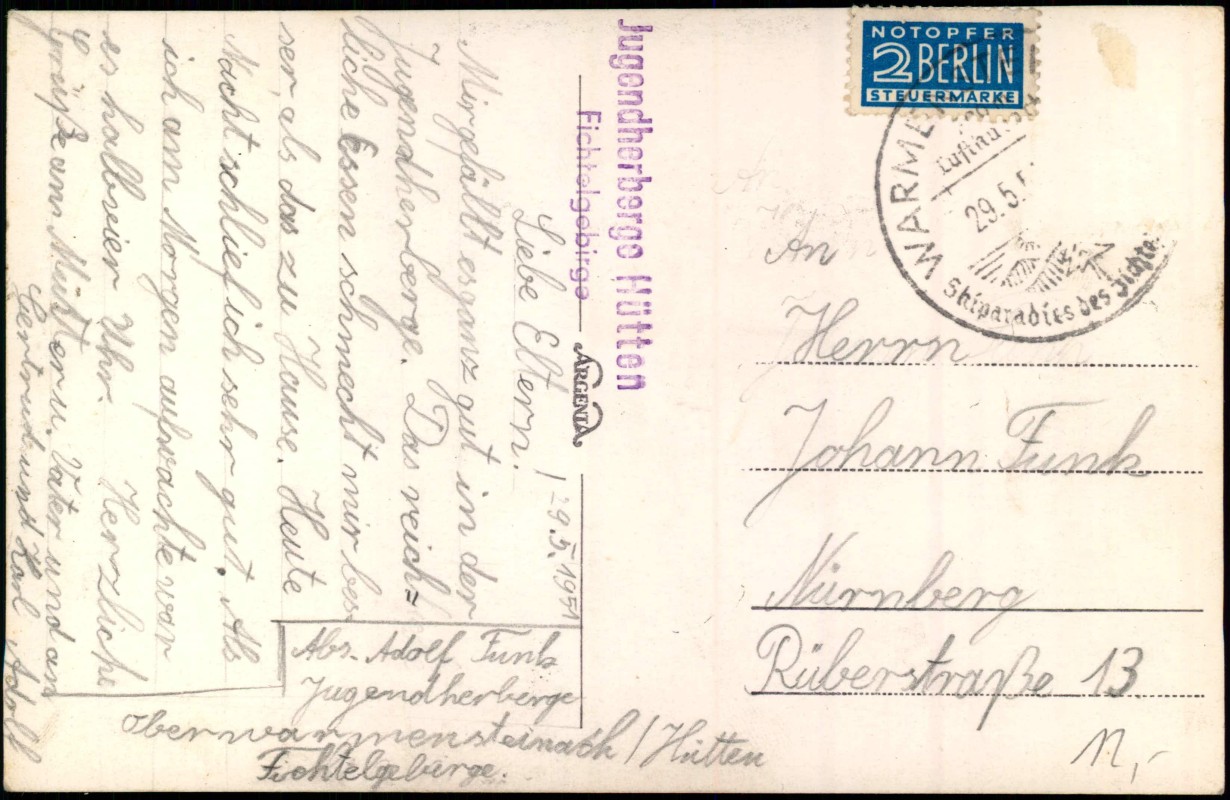 Jugendherberge Hütten
Fichtelgebirge
ARGENTA
29.5.1951
Liebe Eltern!
Mir gefällt es ganz gut in der
Jugendherberge. Das reich=
liche Essen schmeckt mir bes
ser, als das zu Hause. Heute
Nacht schlief ich sehr gut. Als
ich am Morgen aufwachte war
es halbvier Uhr. Herzliche
Grüße ans Muttern, Vater und an
Gertrud und Karl Adolf
Abs. Adolf Funk
Jugendherberge
Oberwarmensteinach / Hütten
Fichtelgebirge.
NOTOPFER
2 BERLIN
STEUERMARKE
WARME
Luftku
29.5.5
Skiparadies des Fichte
An
Herrn
Johann Funk
Nürnberg
Rüberstraße 13